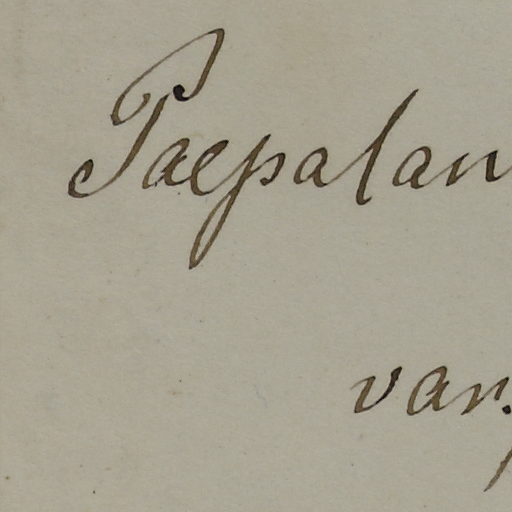 Paepalan
var.